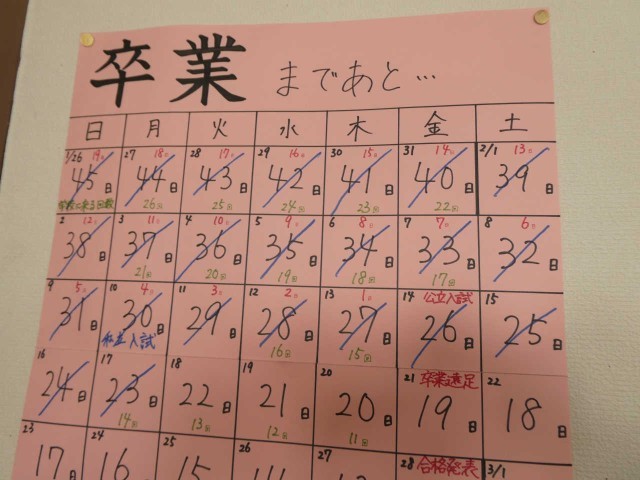 卒業 まであと…
日 月 火 水 木 金 土
1/26 19日 27 18日 28 17日 29 16日 30 15日 31 14日 2/1 13日
45日 44日 43日 42日 41日 40日 39日
26回 25回 24回 23回 22回
2 12日 3 11日 4 10日 5 9日 6 8日 7 7日 8 6日
38日 37日 36日 35日 34日 33日 32日
21回 20回 19回 18回 17回
9 5日 10 4日 11 3日 12 2日 13 1日 14 公立入試 15
31日 30日 29日 28日 27日 26日 25日
私立入試 16回 15回
16 17 18 19 20 21 卒業遠足 22
24日 23日 22日 21日 20日 19日 18日
14回 13回 12回 11回
23 24 25 26 27 28 合格発表 3/1
17日 16 15